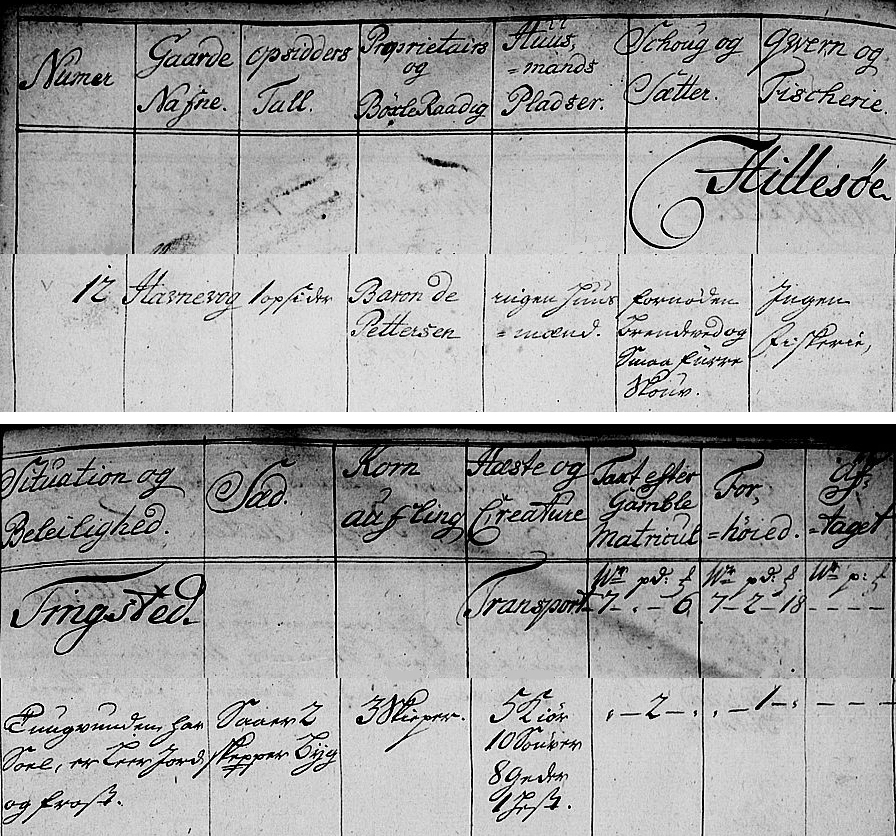 Numer
Gaarde
Nafne.
opsidders
Tall.
Proprietairs
og
Böxle Raadig
Huus,
=mands
Pladser.
Schoug og
Sætter.
Qvern og
Fischerie.
Hillesöe
12
Havnevog
1 opsider
Baron de
Pettersen
ingen Huus
=mænd.
fornøden
brendeved og
Smaa furre
Skouv.
Ingen
fiskerie,
Situation og
Beleilighed.
Sæd.
Korn
aufling
Hæste og
Creature
Taxt efter
Gamble
Matricul
For,
=höied.
Af,
=taget
Tingsted.
Transport
7 - . - 6
7 - 2 - 18
- - - -
har
Soel, er Leer Jord
og frost.
Saaer 2
skepper byg
3 Skieper.
5 Kiör
10 Souver
8 geder
1 Hest.
. - 2 - .
. - 1 - .
- - -